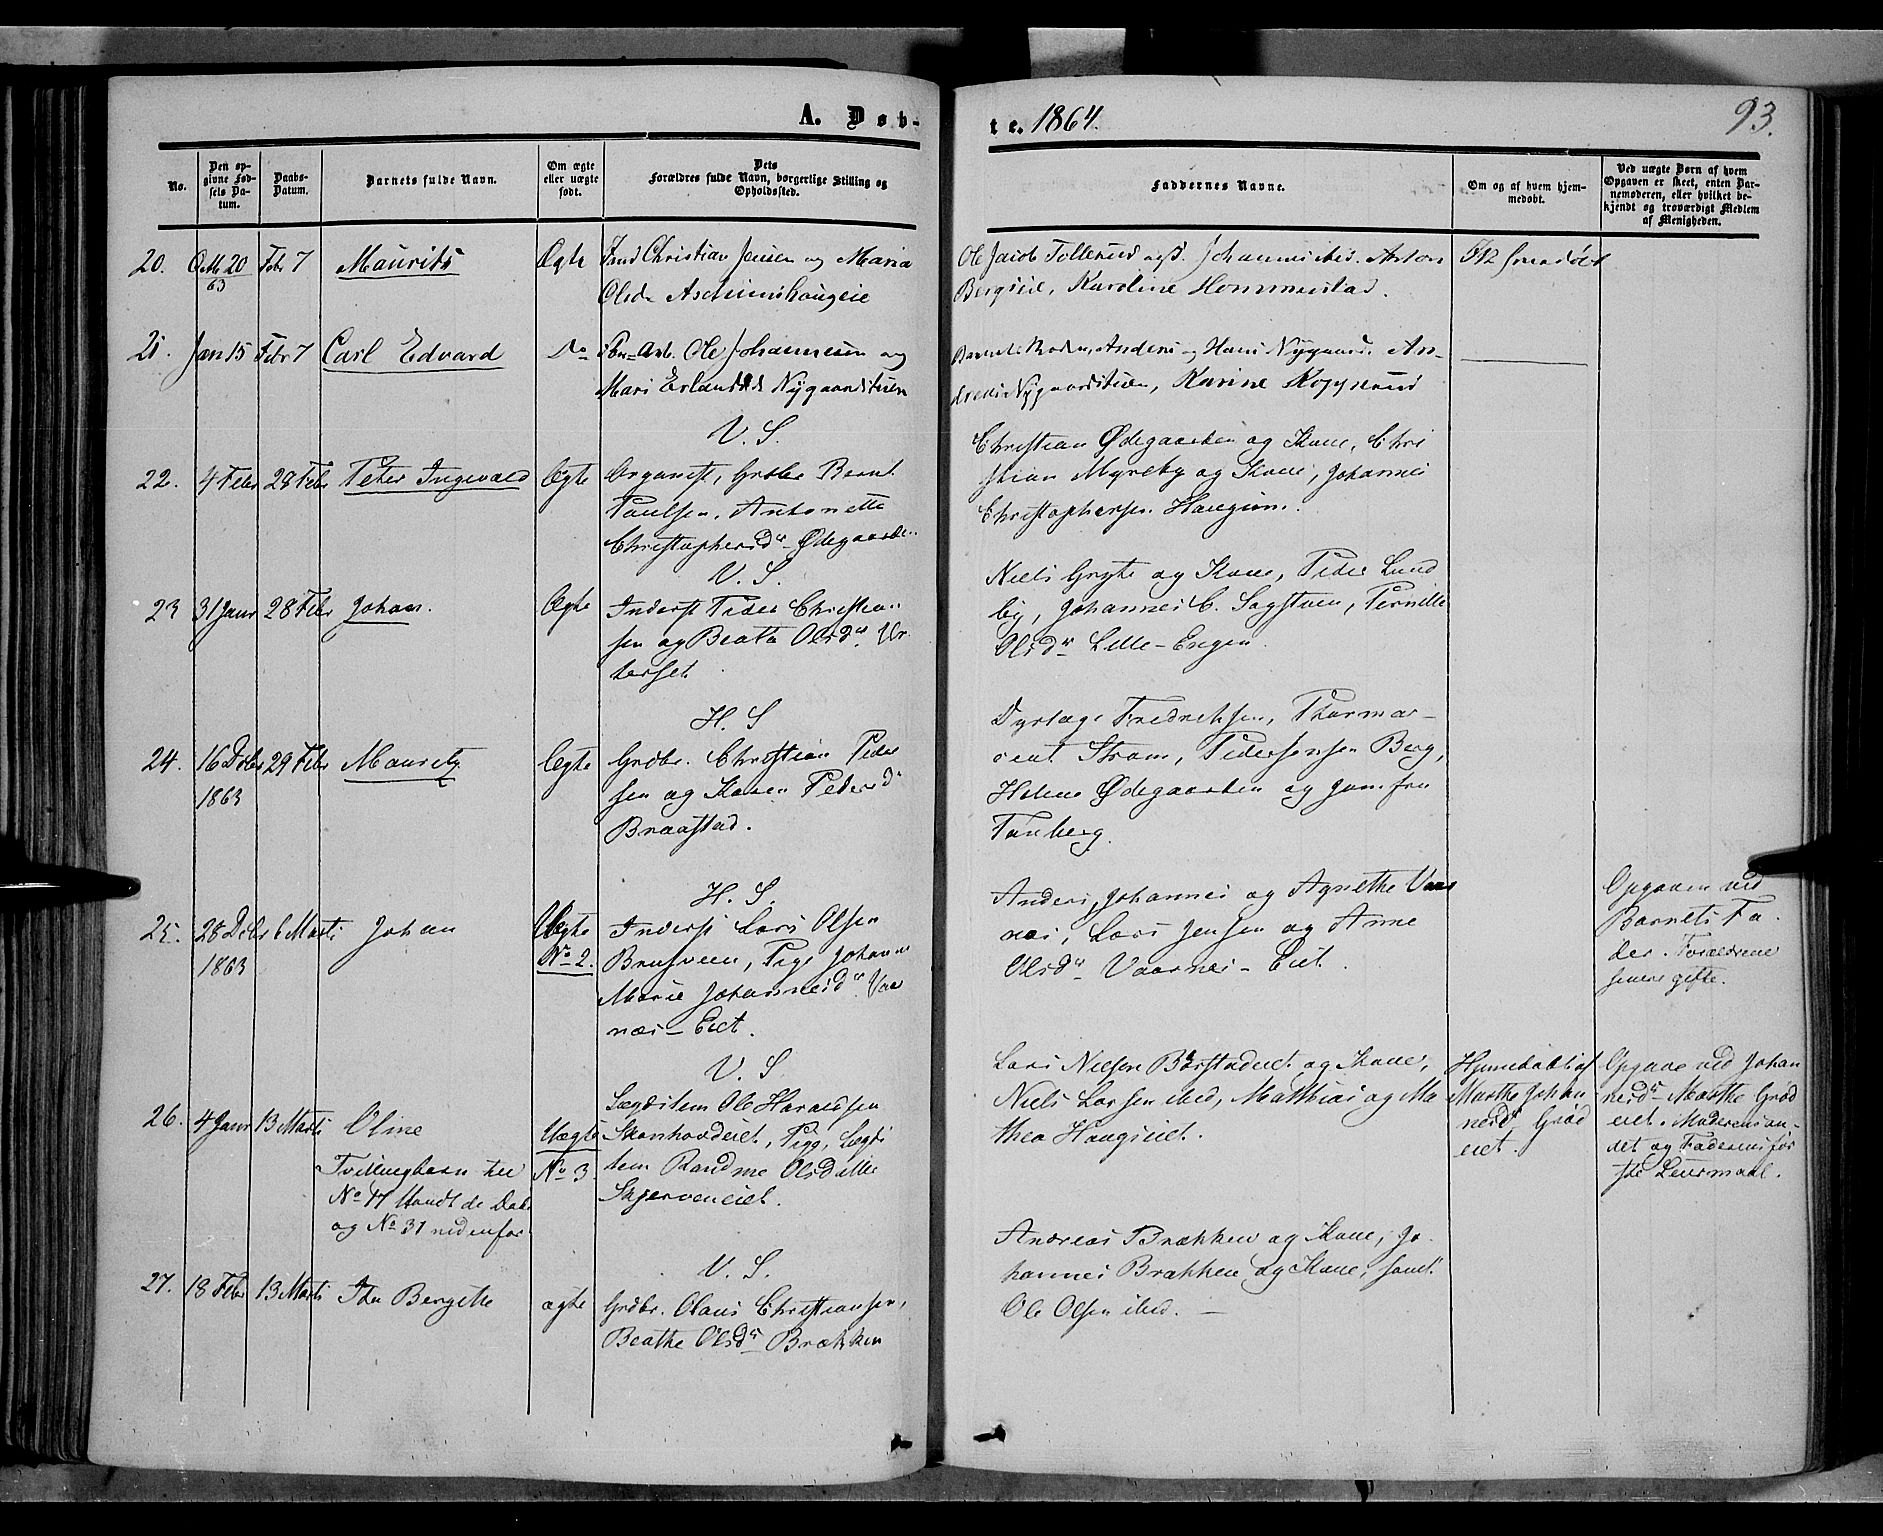 A. Døb-
te. 1864.
93.
No.
Den opgivne Fødsels Datum.
Daabs-Datum.
Barnets fulde Navn.
Om ægte eller uægte født.
Dets Forældres fulde Navn, borgerlige Stilling og Opholdssted.
Faddernes Navne.
Om og af hvem hjemmedøbt.
Ved uægte Børn af hvem Opgaven er skeet, enten Barnemoderen, eller hvilket bekjendt og troværdigt Medlem af Menigheden.
20. 20/63 Febr 7 Maurits Ægte
Christian Jensen og Maria
Olsdr
Ole Jacob Tollerud
Karoline Hommerstad.
21. Jan 15 Febr 7 Carl Edvard Do
Ole Johannesen og
Mari Erlandsd Nygaardstuen
Anders og Hans Nygaard. An-
dreas Nygaardstuen, Karine
V. S.
22. 4 Febr 28 Febr Peter Ingevald Ægte
Organist, Grdbr Bernt
Paulsen, Antonette
Christophersdr Ødegaarden
Christian Ødegaarden og Kone, Chri
stian Myreby og Kone, Johannes
Christophersen Haugum.
V. S.
23 31 Janr 28 Febr Johan. Ægte
Inderst Peder Christian
sen og Beata Olsdr.
terset
Niels Grythe og Kone, Peder Lund
by, Johannes C. Sagstuen, Pernille
Olsdr Lille-Engen.
H. S
24. 16 Dcbr 1863 29 Febr Mauritz Ægte
Grdbr. Christian Peder
sen og Karen Pedersdr
Braastad.
Dyrlæge Fredriksen,
Strøm, Berg,
Helene Ødegaarden og Jomfru
Tanberg.
H. S.
25. 28 Dcbr 1863 6 Marts Johan Uægte No 2.
Inderst Lars Olsen
Brusveen, Pige Johanne
Marie Johannesdr. Vaar
næs-Eiet.
Anders, Johannes og Agnethe Vaar
næs, Lars Jensen og Anne
Olsdr Vaarnes-Eiet.
Opgaven ved
Barnets Fa-
der. Forældrene
senere gifte.
V. S
26. 4 Janr 13 Marts Oline Uægte No 3
Tvillingbarn
No 17
og No 31 nedenfor
Lægdslem Ole Haraldsen
Skonhovdeiet, Pige, Lægds
lem Randine Olsdatter
Skjerveneiet.
Lars Nielsen Børstadeiet og Kone,
Niels Larsen ibid, Matthias og Ma
thea Haugseiet.
Hjemmedøbt af
Marthe Johan
nesdr Grød
eiet.
Opgave ved Johan
nesdr Marthe Grød
eiet. Moderens an-
det og Faderens før
ste Leiermaal.
V. S.
27. 18 Febr 13 Marts Ida Bergitte ægte
Grdbr. Olaus Christiansen,
Beathe Olsdr Brækken
Andreas Brækken og Kone, Jo-
hannes Brækken og Kone, samt
Ole Olsen ibid. —